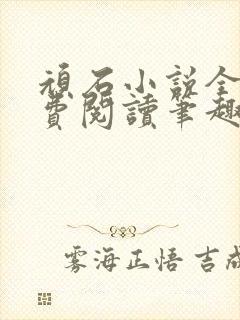 頑石小説全
費閱讀筆趣
雾海正悟 吉成